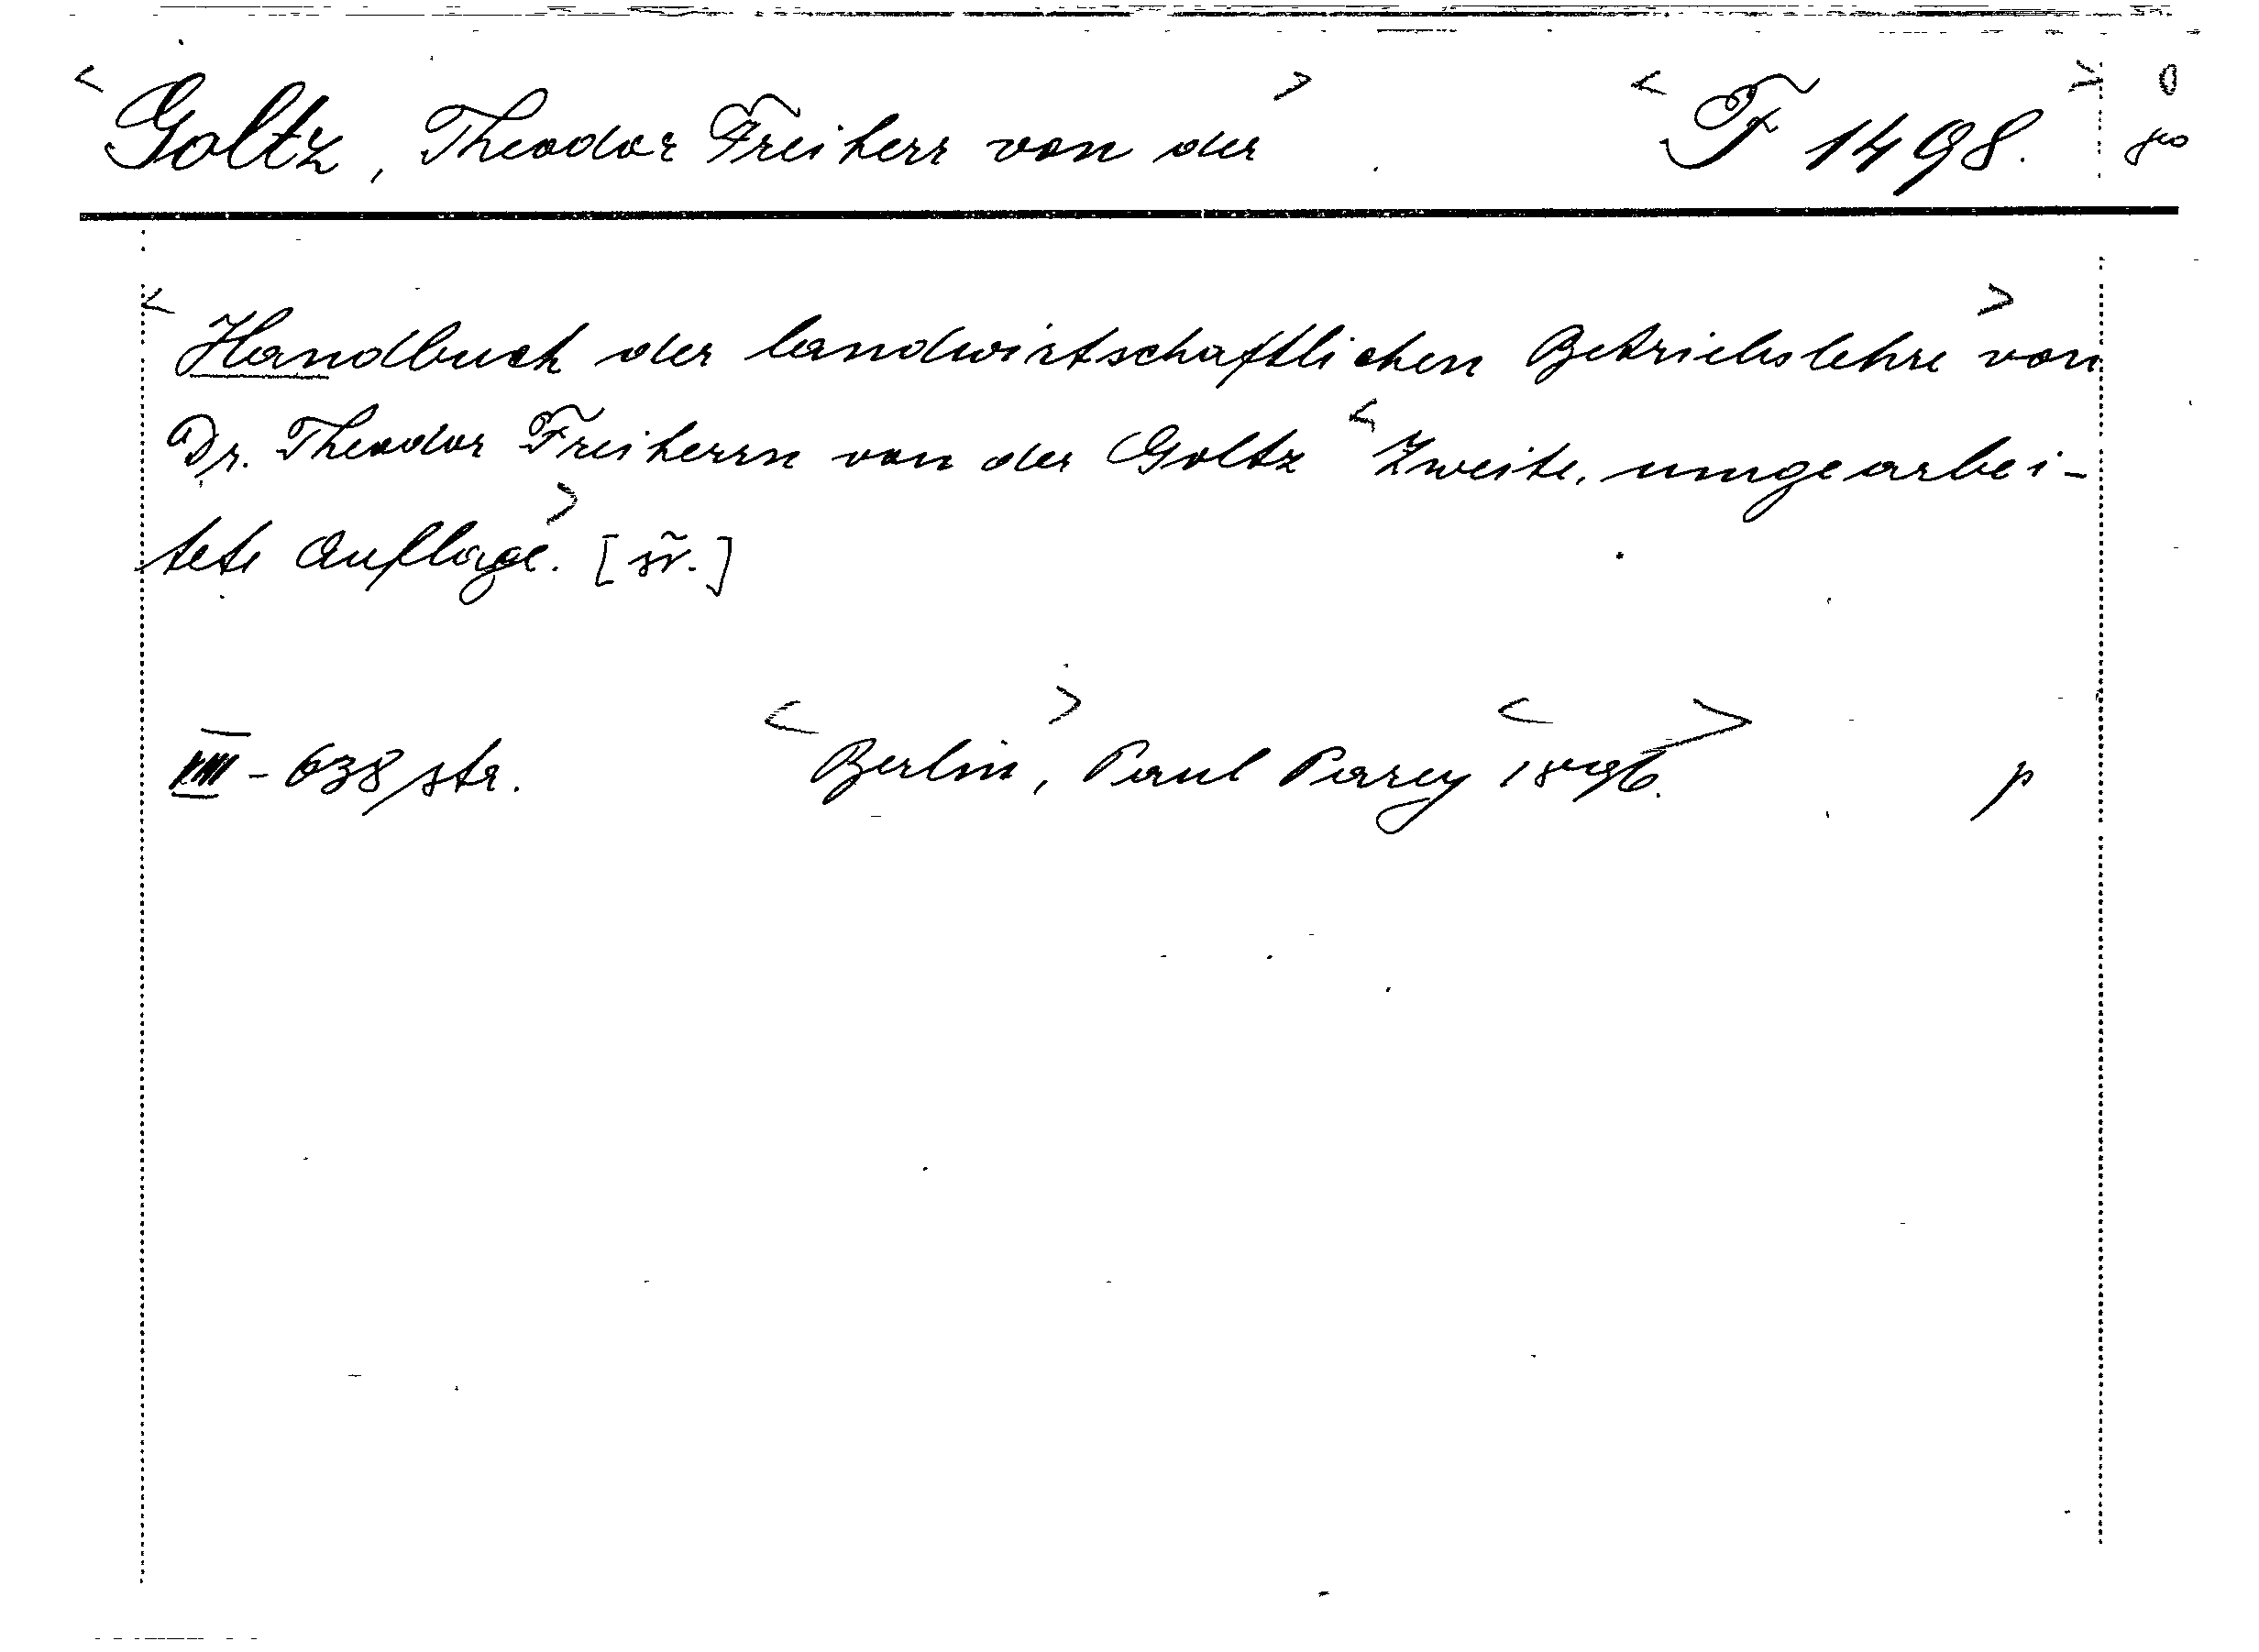 <Goltz, Theodor Freiherr von der> <F 1498.>
<Handbuch der landwirtschaftlichen Betriebslehre> von
Dr. Theodor Freiherrn von der Goltz <Zweite, umgearbei-
tete Auflage.>
VIII - 638 str. <Berlin>, Paul Parey <1896.> p